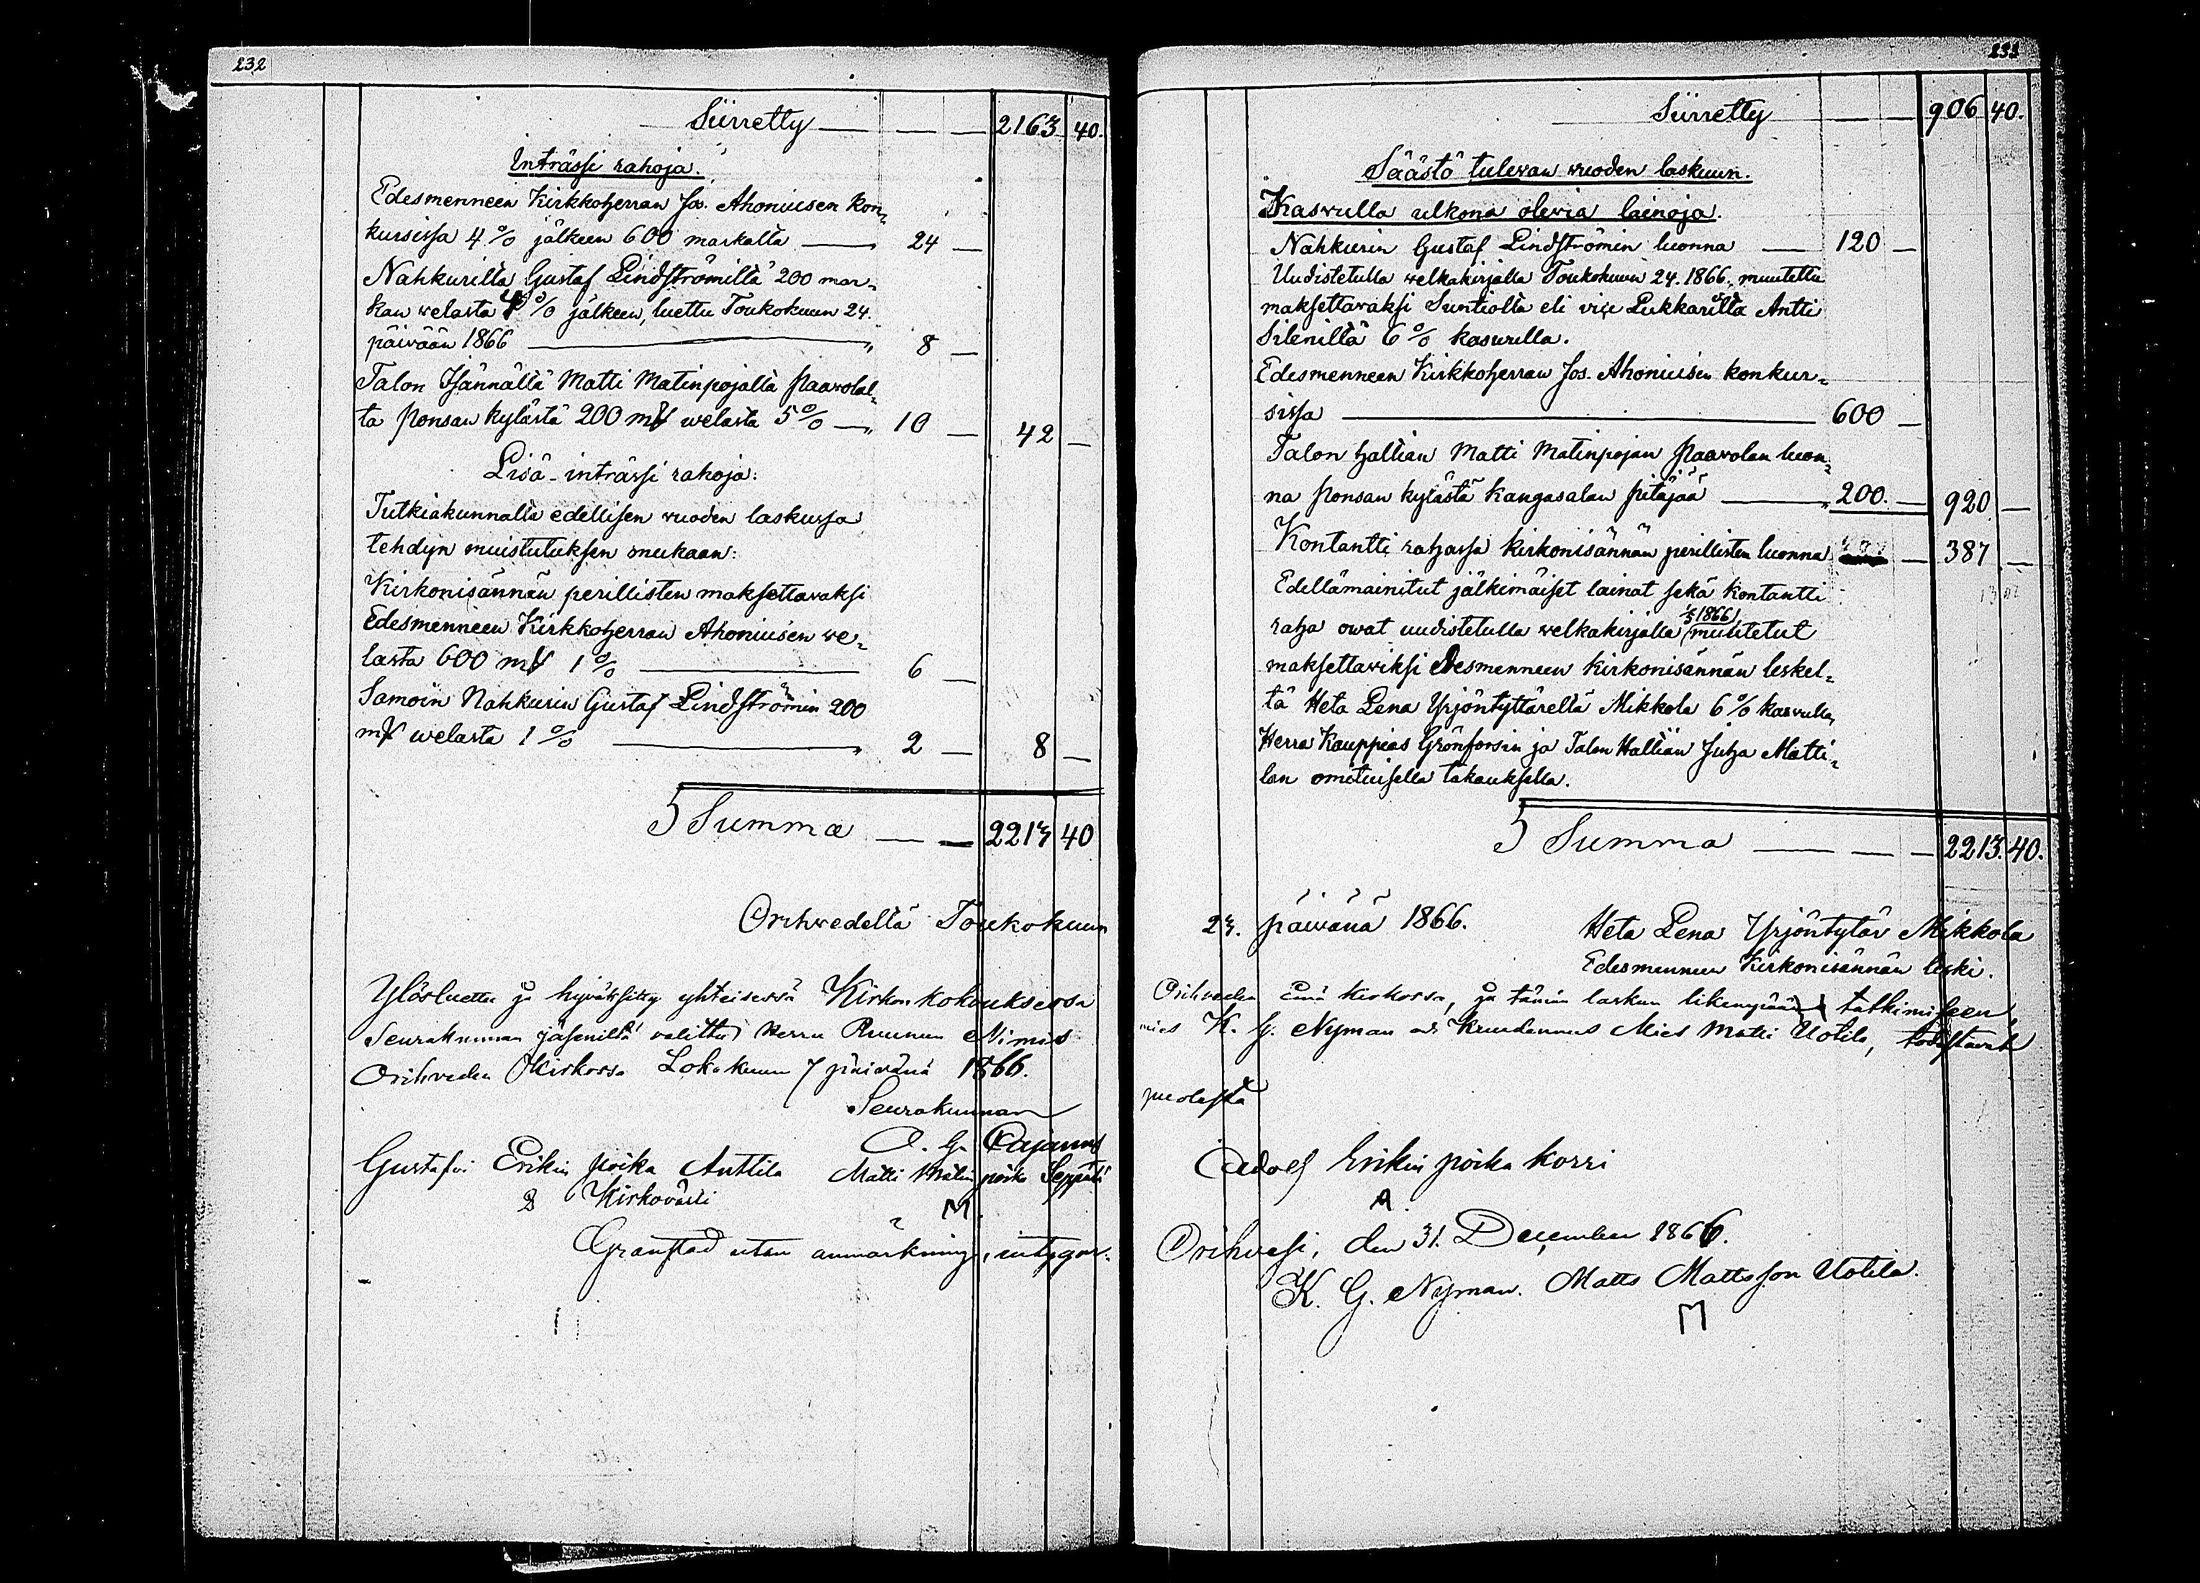 232
Siirretty — — — 2163 40.
Inträssi rahoja.
Edesmenneen Kirkkoherran Jos. Ahoniusen kon-
kursissa 4 % jälkeen 600 markalta — „ 24 —
Nahkurilta Gustaf Lindströmiltä 200 mar-
kan welasta 4 % jälkeen, luettu Toukokuun 24.
päivään 1866 — „ 8 —
Talon Isännältä Matti Matinpojalta Paavolal-
ta Ponsan kylästä 200 mk welasta 5 % — „ 10 — 42 —
Lisä-inträssi rahoja:
Tutkiakunnalta edellisen vuoden laskussa
tehdyn muistutuksen mukaan:
Kirkonisännän perillisten maksettavaksi
Edesmenneen Kirkkoherran Ahoniusen we-
lasta 600 mk 1 % — 6 —
Samoin Nahkurin Gustaf Lindströmin 200
mk welasta 1 % — „ 2 — 8 —
Summa — — 2213 40
Orihwedellä Toukokuun
Ylösluettu ja hyväksitty yhteisessä Kirkon kokouksessa
Seurakunnan jäseniltä valittu Herra Ruunun Nimis
Orihveden Kirkossa Lokakuun 7 päivänä 1866.
Seurakunnan
Gustafi Erikin poika Anttila Matti Matin poika Seppälä
Kirkovärti M
Granskad utan anmärkning, intygar.
Siirretty — — 906 40.
Säästö tulevan vuoden laskuun.
Kasvulla ulkona olevia lainoja.
Nahkurin Gustaf Lindströmin luonna — 120 —
Uudistetulla welkakirjalla Toukokuun 24. 1866, muutettu
maksettavaksi Suntiolta eli vice Lukkarilta Antti
Sileniltä 6 % kasvulla.
Edesmenneen Kirkkoherran Jos. Ahoniusen konkur-
sissa — 600 —
Talon hallian Matti Matinpojan Paavolan luon-
na Ponsan kylästä Kangasalan pitäjää — „ 200. — 920 —
Kontantti rahassa kirkonisännän perillisten luonna — 387 —
Edellämainitut jälkimäiset lainat sekä kontantti
raha owat uudistetulla welkakirjalla (1866) muutetut
maksettaviksi Edesmenneen Kirkonisännän leskel-
tä Heta Lena Yrjöntyttäreltä Mikkola 6 % kasvulla,
Herra Kauppias Grönforsin ja Talon Hallian Juha Matti-
lan omituisella takauksella.
Summa — — — 2213. 40.
23. päivänä 1866. Heta Lena Yrjöntytär Mikkola
Edesmenneen Kirkonisännän leski.
Orihveden Emä kirkossa, ja tämän laskun likempään tutkimiseen,
mies K. G. Nyman och Kruudennus Mies Matti Uotila, todistavat
puolesta
Adolf Erikin poika Korri
A
Orihvesi, den 31. December 1866.
K. G. Nyman. Matts Mattsson Uotila.
M